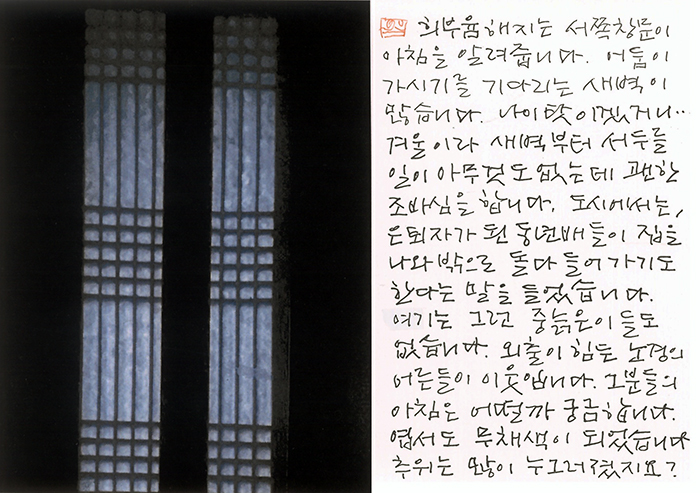 희부윰해지는 서쪽창문이
아침을 알려줍니다. 어둠이
가시기를 기다리는 새벽이
많습니다. 나이탓이겠거니…
겨울이라 새벽부터 서두를
일이 아무것도 없는데 괜한
조바심을 합니다. 도시에서는,
은퇴자가 된 동년배들이 집을
나와 밖으로 돌다 들어가기도
한다는 말을 들었습니다.
여기는 그런 중늙은이들도
없습니다. 외출이 힘든 노경의
어른들이 이웃입니다. 그분들의
아침은 어떨까 궁금합니다.
엽서도 무채색이 되었습니다
추위는 많이 누그러졌지요?